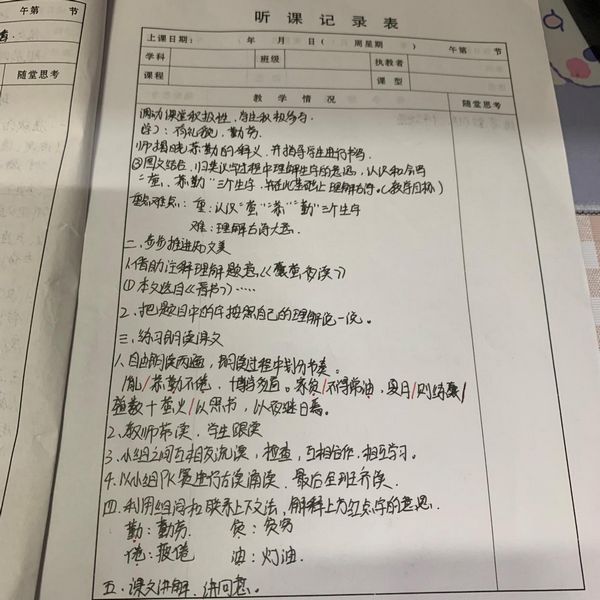 听课记录表
午第 节
上课日期： 年 月 日（ 周星期 ） 午第 节
学科 班级 执教者
课程 课型
教学情况 随堂思考
随堂思考
调动课堂积极性，学生积极参与
恭勤的释义，并指导学生进行书写
③图文结合，归类识字过程中理解生字的意思，认识和会写
"萤、恭、勤"三个生字，并在此基础上理解古诗。（教学目标）
重难点：重：认识"萤""恭""勤"三个生字
难：理解古诗大意
二、步步推进知文美
1、借助注解理解题意《囊萤夜读》
①本文选自《晋书》……
2、把题目中的字按照自己的理解说一说。
三、练习朗读课文
1、自由朗读两遍，朗读过程中划分节奏。
胤/恭勤不倦，博学多通。家贫/不得常油，夏月/则练囊/
盛数十萤火/以照书，以夜继日焉。
2、教师带读，学生跟读
3、小组之间互相交流读，检查，互相合作，相互学习。
4、以小组PK赛进行右读诵读，最后全班齐读。
四、利用组词和联系上下文法，解释上方红点字的意思
勤：勤劳 贫：贫穷
倦：疲倦 油：灯油
五、课文讲解，讲问题。